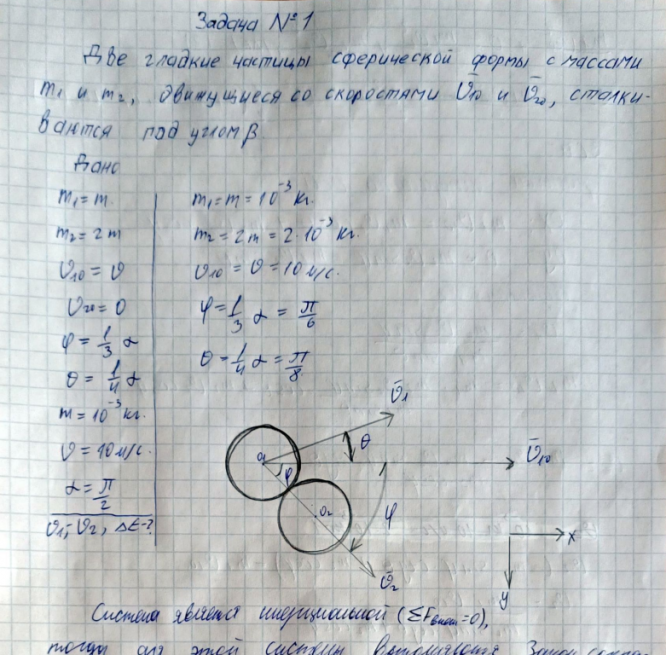 Задача №1
Две гладкие частицы сферической формы с массами
m₁ и m₂, движущиеся со скоростями v̄₁₀ и v̄₂₀, сталки-
ваются под углом β.
Дано
m₁ = m
m₂ = 2m
v₁₀ = v
v₂₀ = 0
φ = 1/3 α
θ = 1/4 α
m = 10⁻³ кг.
v = 10 м/с.
α = π/2
v₁, v₂, ΔE - ?
m₁ = m = 10⁻³ кг.
m₂ = 2m = 2·10⁻³ кг.
v₁₀ = v = 10 м/с.
φ = 1/3 α = π/6
θ = 1/4 α = π/8
v̄₁
θ
v̄₁₀
O₁
φ
O₂
φ
v̄₂
x
y
Система является инерциальной (ΣFвнеш = 0),
тогда для этой системы выполняется Закон сохра-